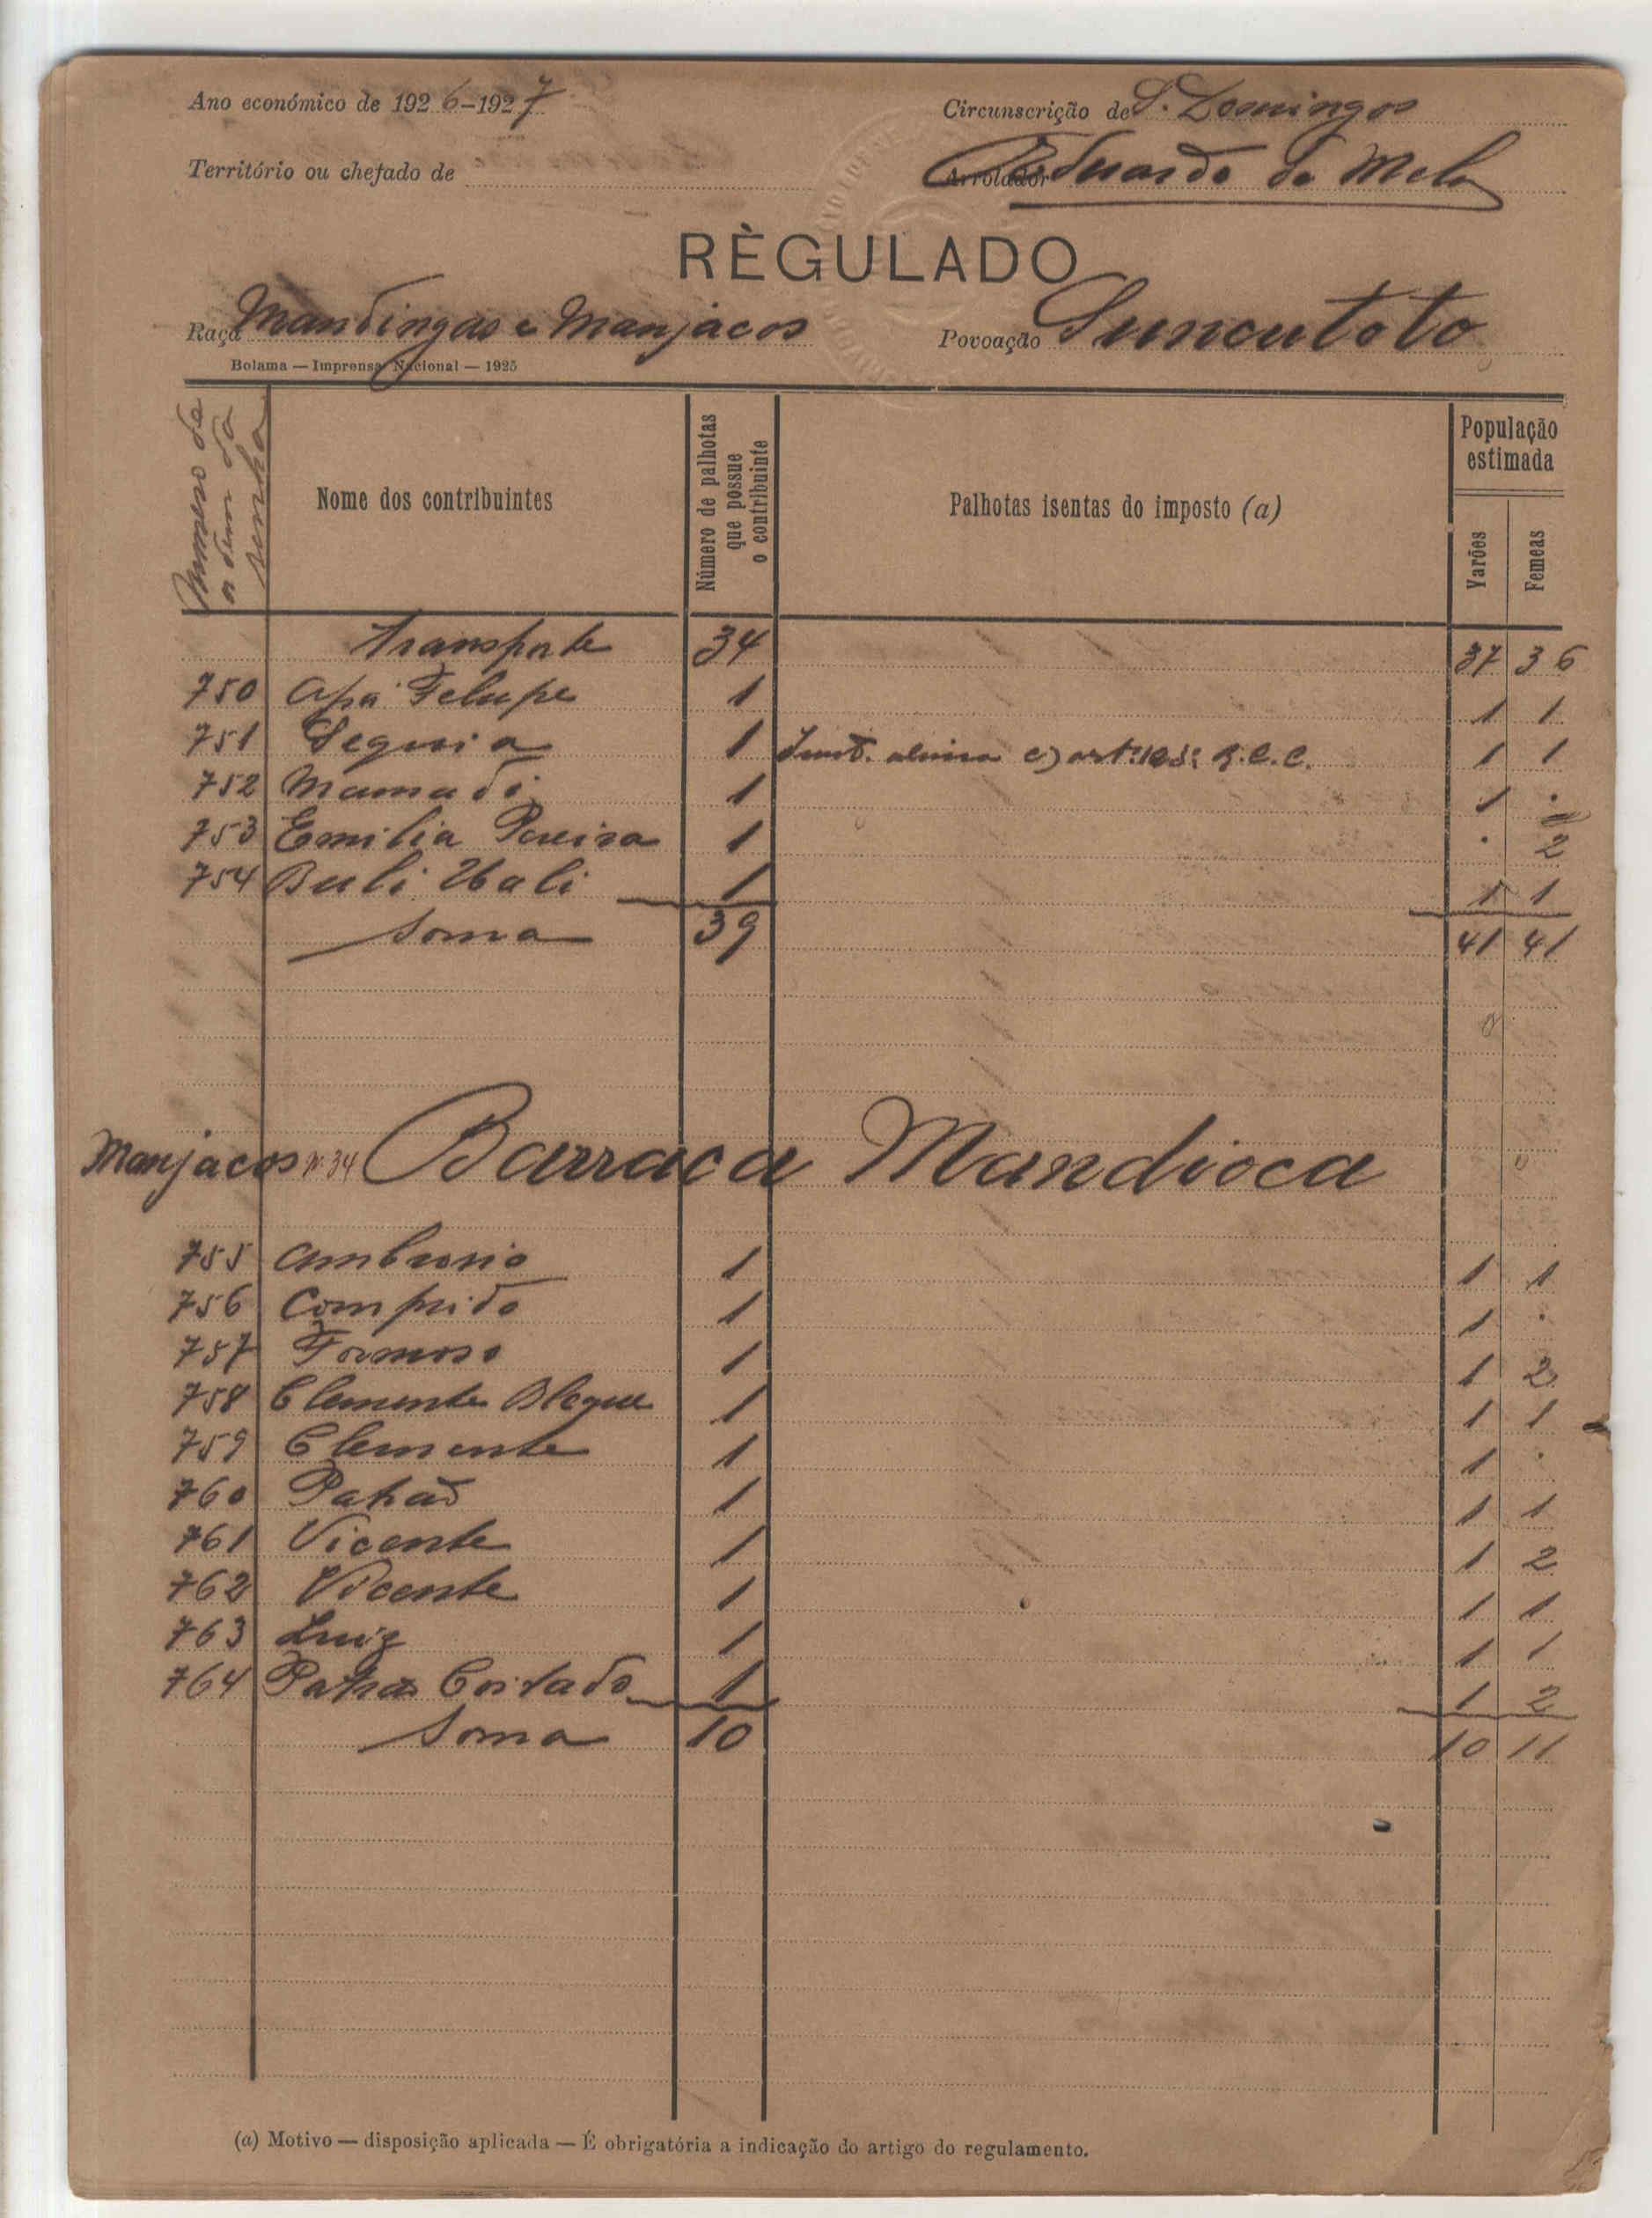 Ano económico de 1926-1927 Circunscrição de S. Domingos
Território ou chefado de Arrolador Eduardo de Melo
RÈGULADO
Raça Mandingas e Manjacos Povoação Suncutoto
Bolama — Imprensa Nacional — 1925
Numero de senha
Nome dos contribuintes
Número de palhotas que possue o contribuinte
Palhotas isentas do imposto (a)
População estimada
Varões Femeas
Transporte 34 37 36
750 Apá Felupe 1 1 1
751 Sequia 1 c) art. 1 1
752 Mamadi 1 1 .
753 Emilia Pereira 1 . 2
754 Buli 1 1 1
Soma 39 41 41
Manjacos Nº 34 Barraca Mandioca
755 Ambrosio 1 1 1
756 Comprido 1 1 .
757 Formoso 1 1 2
758 Clemente 1 1 1
759 Clemente 1 1 .
760 1 1 1
761 Vicente 1 1 2
762 Vicente 1 1 1
763 Luiz 1 1 1
764 1 1 2
Soma 10 10 11
(a) Motivo — disposição aplicada — É obrigatória a indicação do artigo do regulamento.